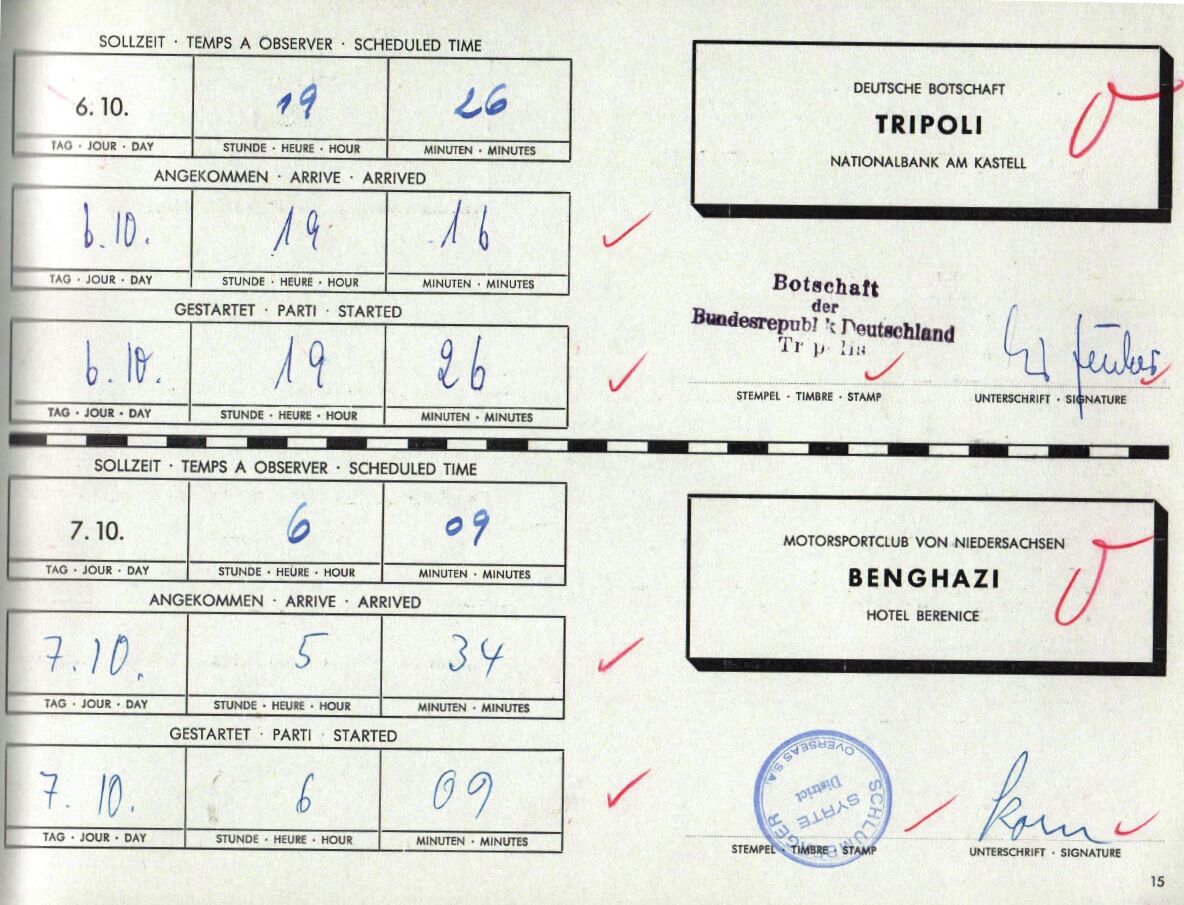 SOLLZEIT · TEMPS A OBSERVER · SCHEDULED TIME
6.10. 19 26
TAG · JOUR · DAY STUNDE · HEURE · HOUR MINUTEN · MINUTES
ANGEKOMMEN · ARRIVE · ARRIVED
6.10. 19 16
TAG · JOUR · DAY STUNDE · HEURE · HOUR MINUTEN · MINUTES
GESTARTET · PARTI · STARTED
6.10. 19 26
TAG · JOUR · DAY STUNDE · HEURE · HOUR MINUTEN · MINUTES
DEUTSCHE BOTSCHAFT
TRIPOLI
NATIONALBANK AM KASTELL
Botschaft
der
Bundesrepublik Deutschland
STEMPEL · TIMBRE · STAMP UNTERSCHRIFT · SIGNATURE
SOLLZEIT · TEMPS A OBSERVER · SCHEDULED TIME
7.10. 6 09
TAG · JOUR · DAY STUNDE · HEURE · HOUR MINUTEN · MINUTES
ANGEKOMMEN · ARRIVE · ARRIVED
7.10. 5 34
TAG · JOUR · DAY STUNDE · HEURE · HOUR MINUTEN · MINUTES
GESTARTET · PARTI · STARTED
7.10. 6 09
TAG · JOUR · DAY STUNDE · HEURE · HOUR MINUTEN · MINUTES
MOTORSPORTCLUB VON NIEDERSACHSEN
BENGHAZI
HOTEL BERENICE
SCHLUMBERGER OVERSEAS S.A.
SYRTE
District
STEMPEL · TIMBRE · STAMP UNTERSCHRIFT · SIGNATURE
15